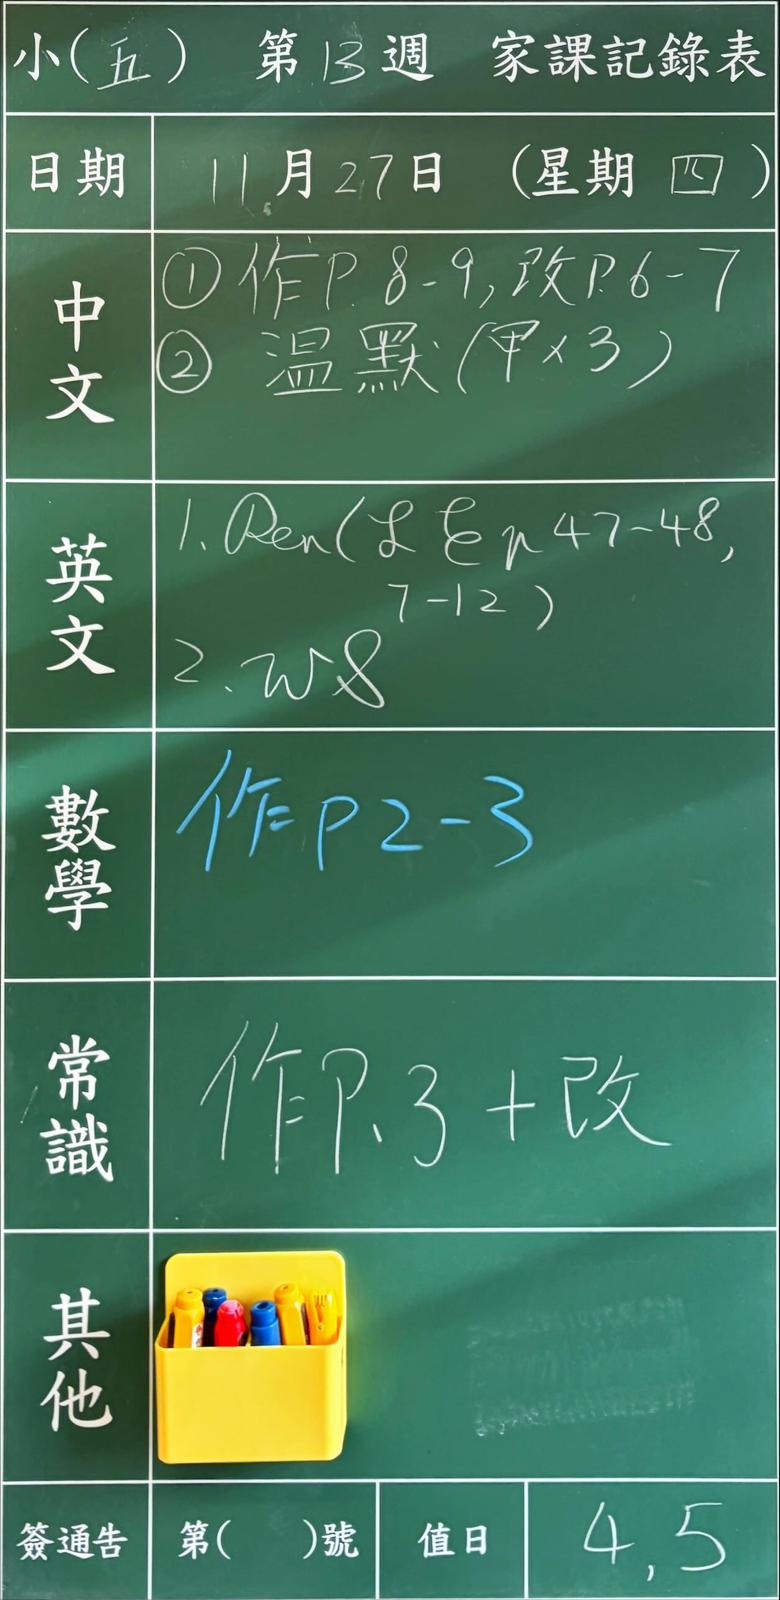 小(五) 第13週 家課記錄表
日期 11月27日 (星期四)
中文
①作P.8-9,改P.6-7
②溫默(甲×3)
英文
1. Pen( p 47-48,
7-12)
2. W8
數學
作P2-3
常識
作P.3+改
其他
簽通告 第( )號 值日 4,5